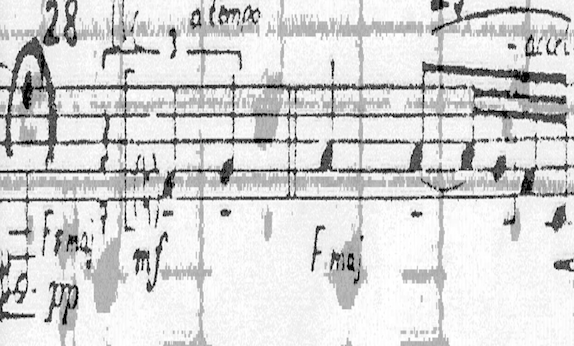 28
a tempo
3
accel
F maj
mf
F maj
pp